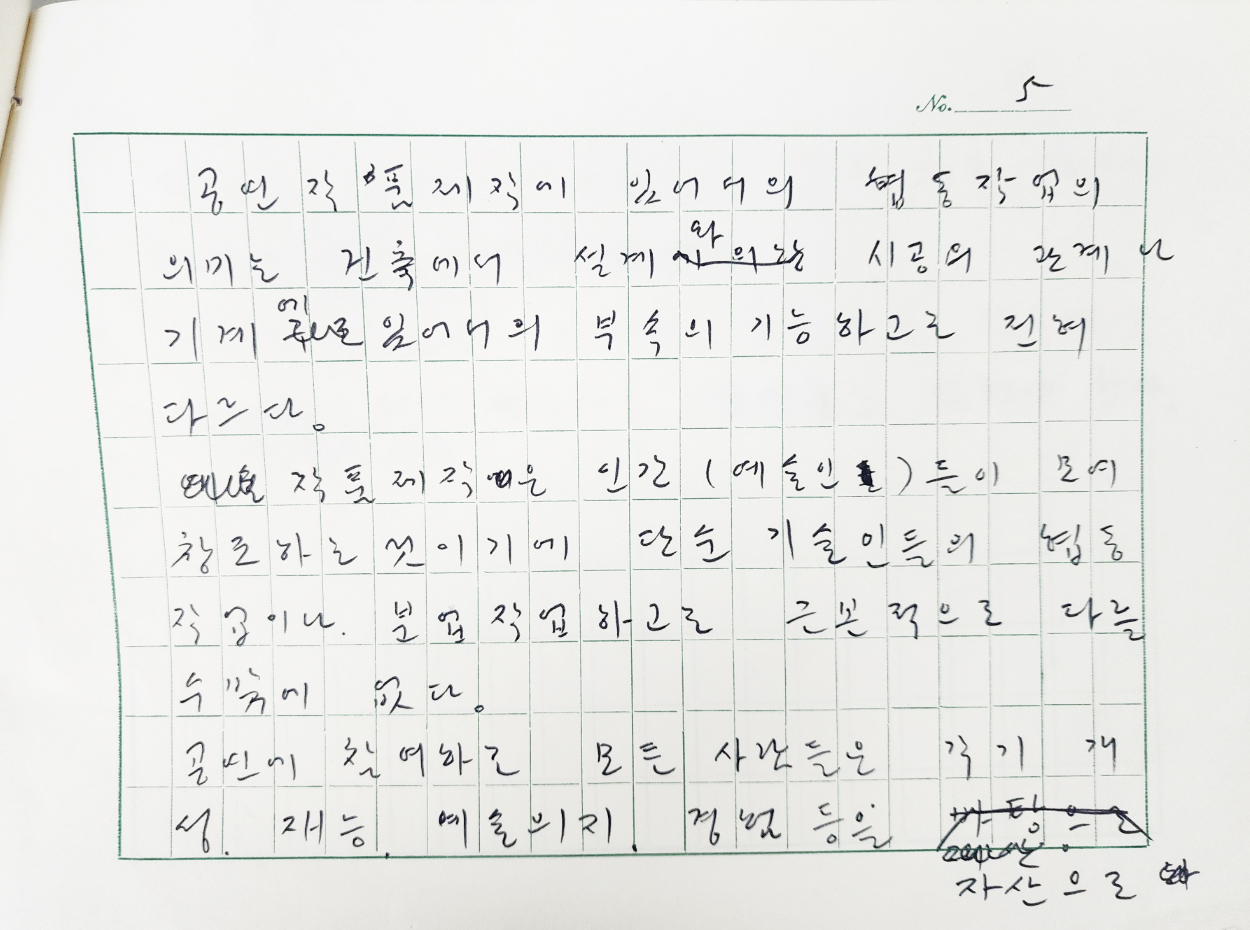 No. 5
공연 작품 제작에 있어서의 협동작업의
의미는 건축에서 설계와 시공의 관계나
기계에 있어서의 부속의 기능하고도 전혀
다르다。
작품제작은 인간(예술인)들이 모여
창조하는 것이기에 단순 기술인들의 협동
작업이나. 분업작업하고도 근본적으로 다를
수밖에 없다。
공연에 참여하는 모든 사람들은 각기 개
성. 재능. 예술의지. 경험 등을
자산으로